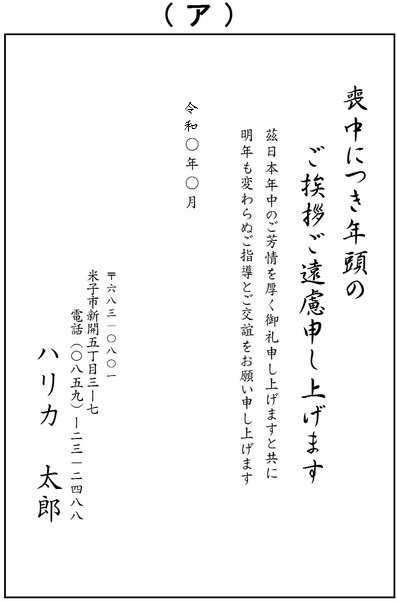 （ア）
喪中につき年頭の
ご挨拶ご遠慮申し上げます
茲日本年中のご芳情を厚く御礼申し上げますと共に
明年も変わらぬご指導とご交誼をお願い申し上げます
令和〇年〇月
〒六八三－〇八〇一
米子市新開五丁目三－七
電話（〇八五九）－二三－二四八八
ハリカ　太郎